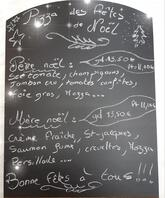 Pizza des fêtes
de Noël
Père noël : gd 13,50€
Pt 11,00€
champignons,
Jambon cru, tomates confites,
Foie gras, Mozza...
Mère noël : gd 13,50€
Pt 11,00€
Crème fraîche, St-jacques,
Saumon fumé, crevettes, Mozza
Persillade ...
Bonne fêtes à tous !!!